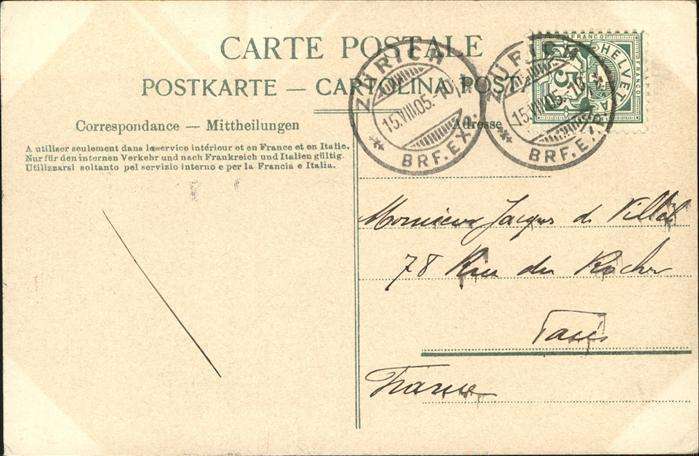 CARTE POSTALE
POSTKARTE — CARTOLINA POST
Correspondance — Mittheilungen
Adresse
A utiliser seulement dans le service intérieur et en France et en Italie.
Nur für den internen Verkehr und nach Frankreich und Italien gültig.
Utilizzarsi soltanto pel servizio interno e per la Francia e Italia.
ZÜRICH
15.VIII.05.
BRF.EXP.
ZÜRICH
15.VIII.05.
BRF.EXP.
FRANCO
HELVETIA
5
Monsieur Jacques de
78 Rue du Rocher
Paris
France